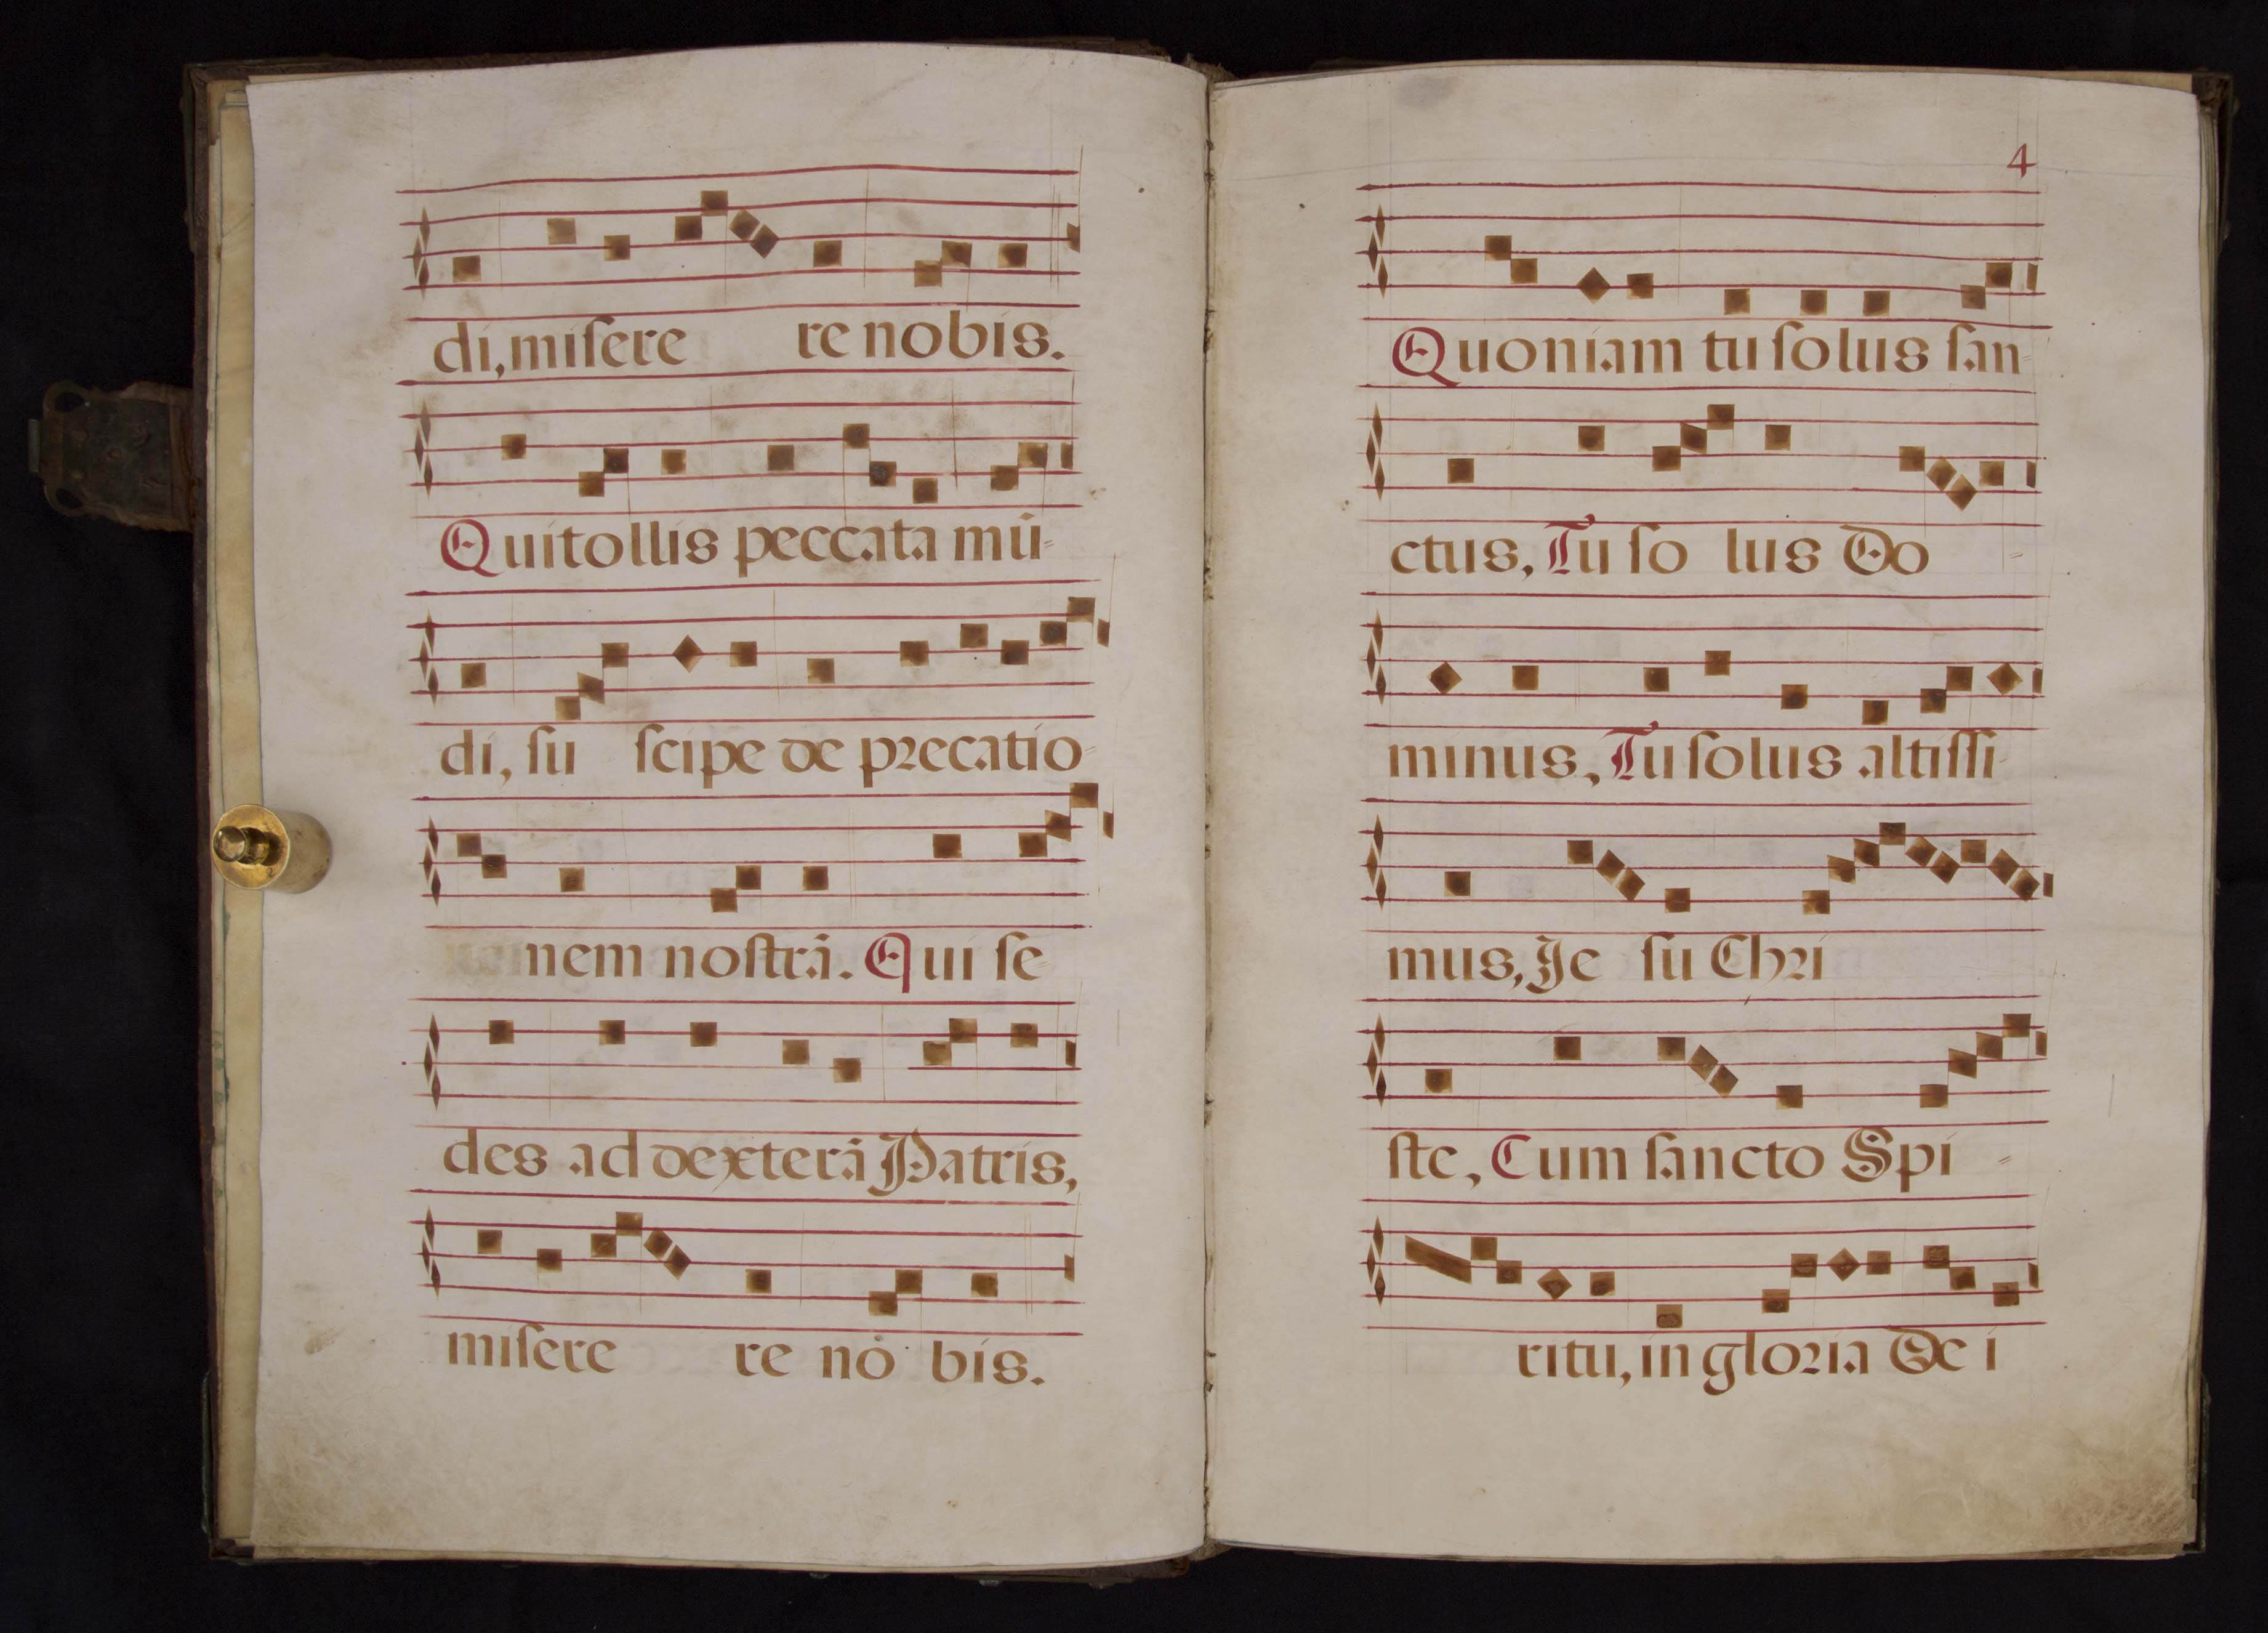 di, miſere re nobis.
Qui tollis peccata mū-
di, ſu ſcipe de precatio-
nem noſtrā. Qui ſe-
des ad dexterā Patris,
miſere re no bis.
4
Quoniam tu ſolus ſan-
ctus, Tu ſo lus Do -
minus, Tu ſolus altiſſi-
mus, Je ſu Chri
ſte, Cum ſancto Spi -
ritu, in gloria De i